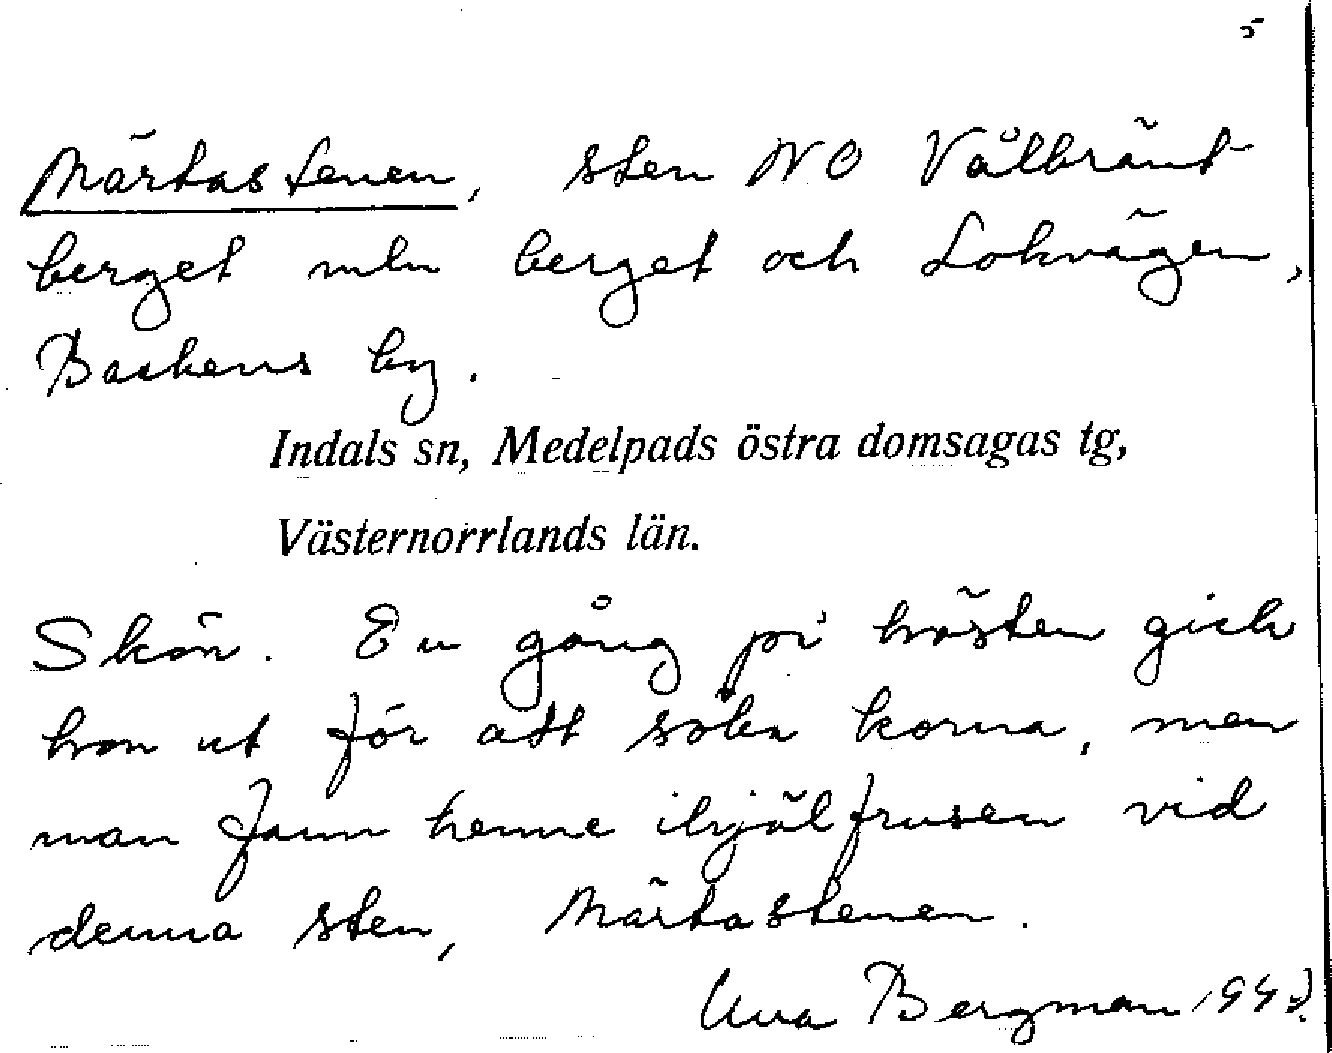 5
Märtastenen, sten NO Vålbränt
berget mln berget och Lokvägen,
Backens by.
Indals sn, Medelpads östra domsagas tg,
Västernorrlands län.
Skön. En gång på hösten gick
hon ut för att söka korna, men
man fann henne ihjälfrusen vid
denna sten, Märtastenen.
Bergman